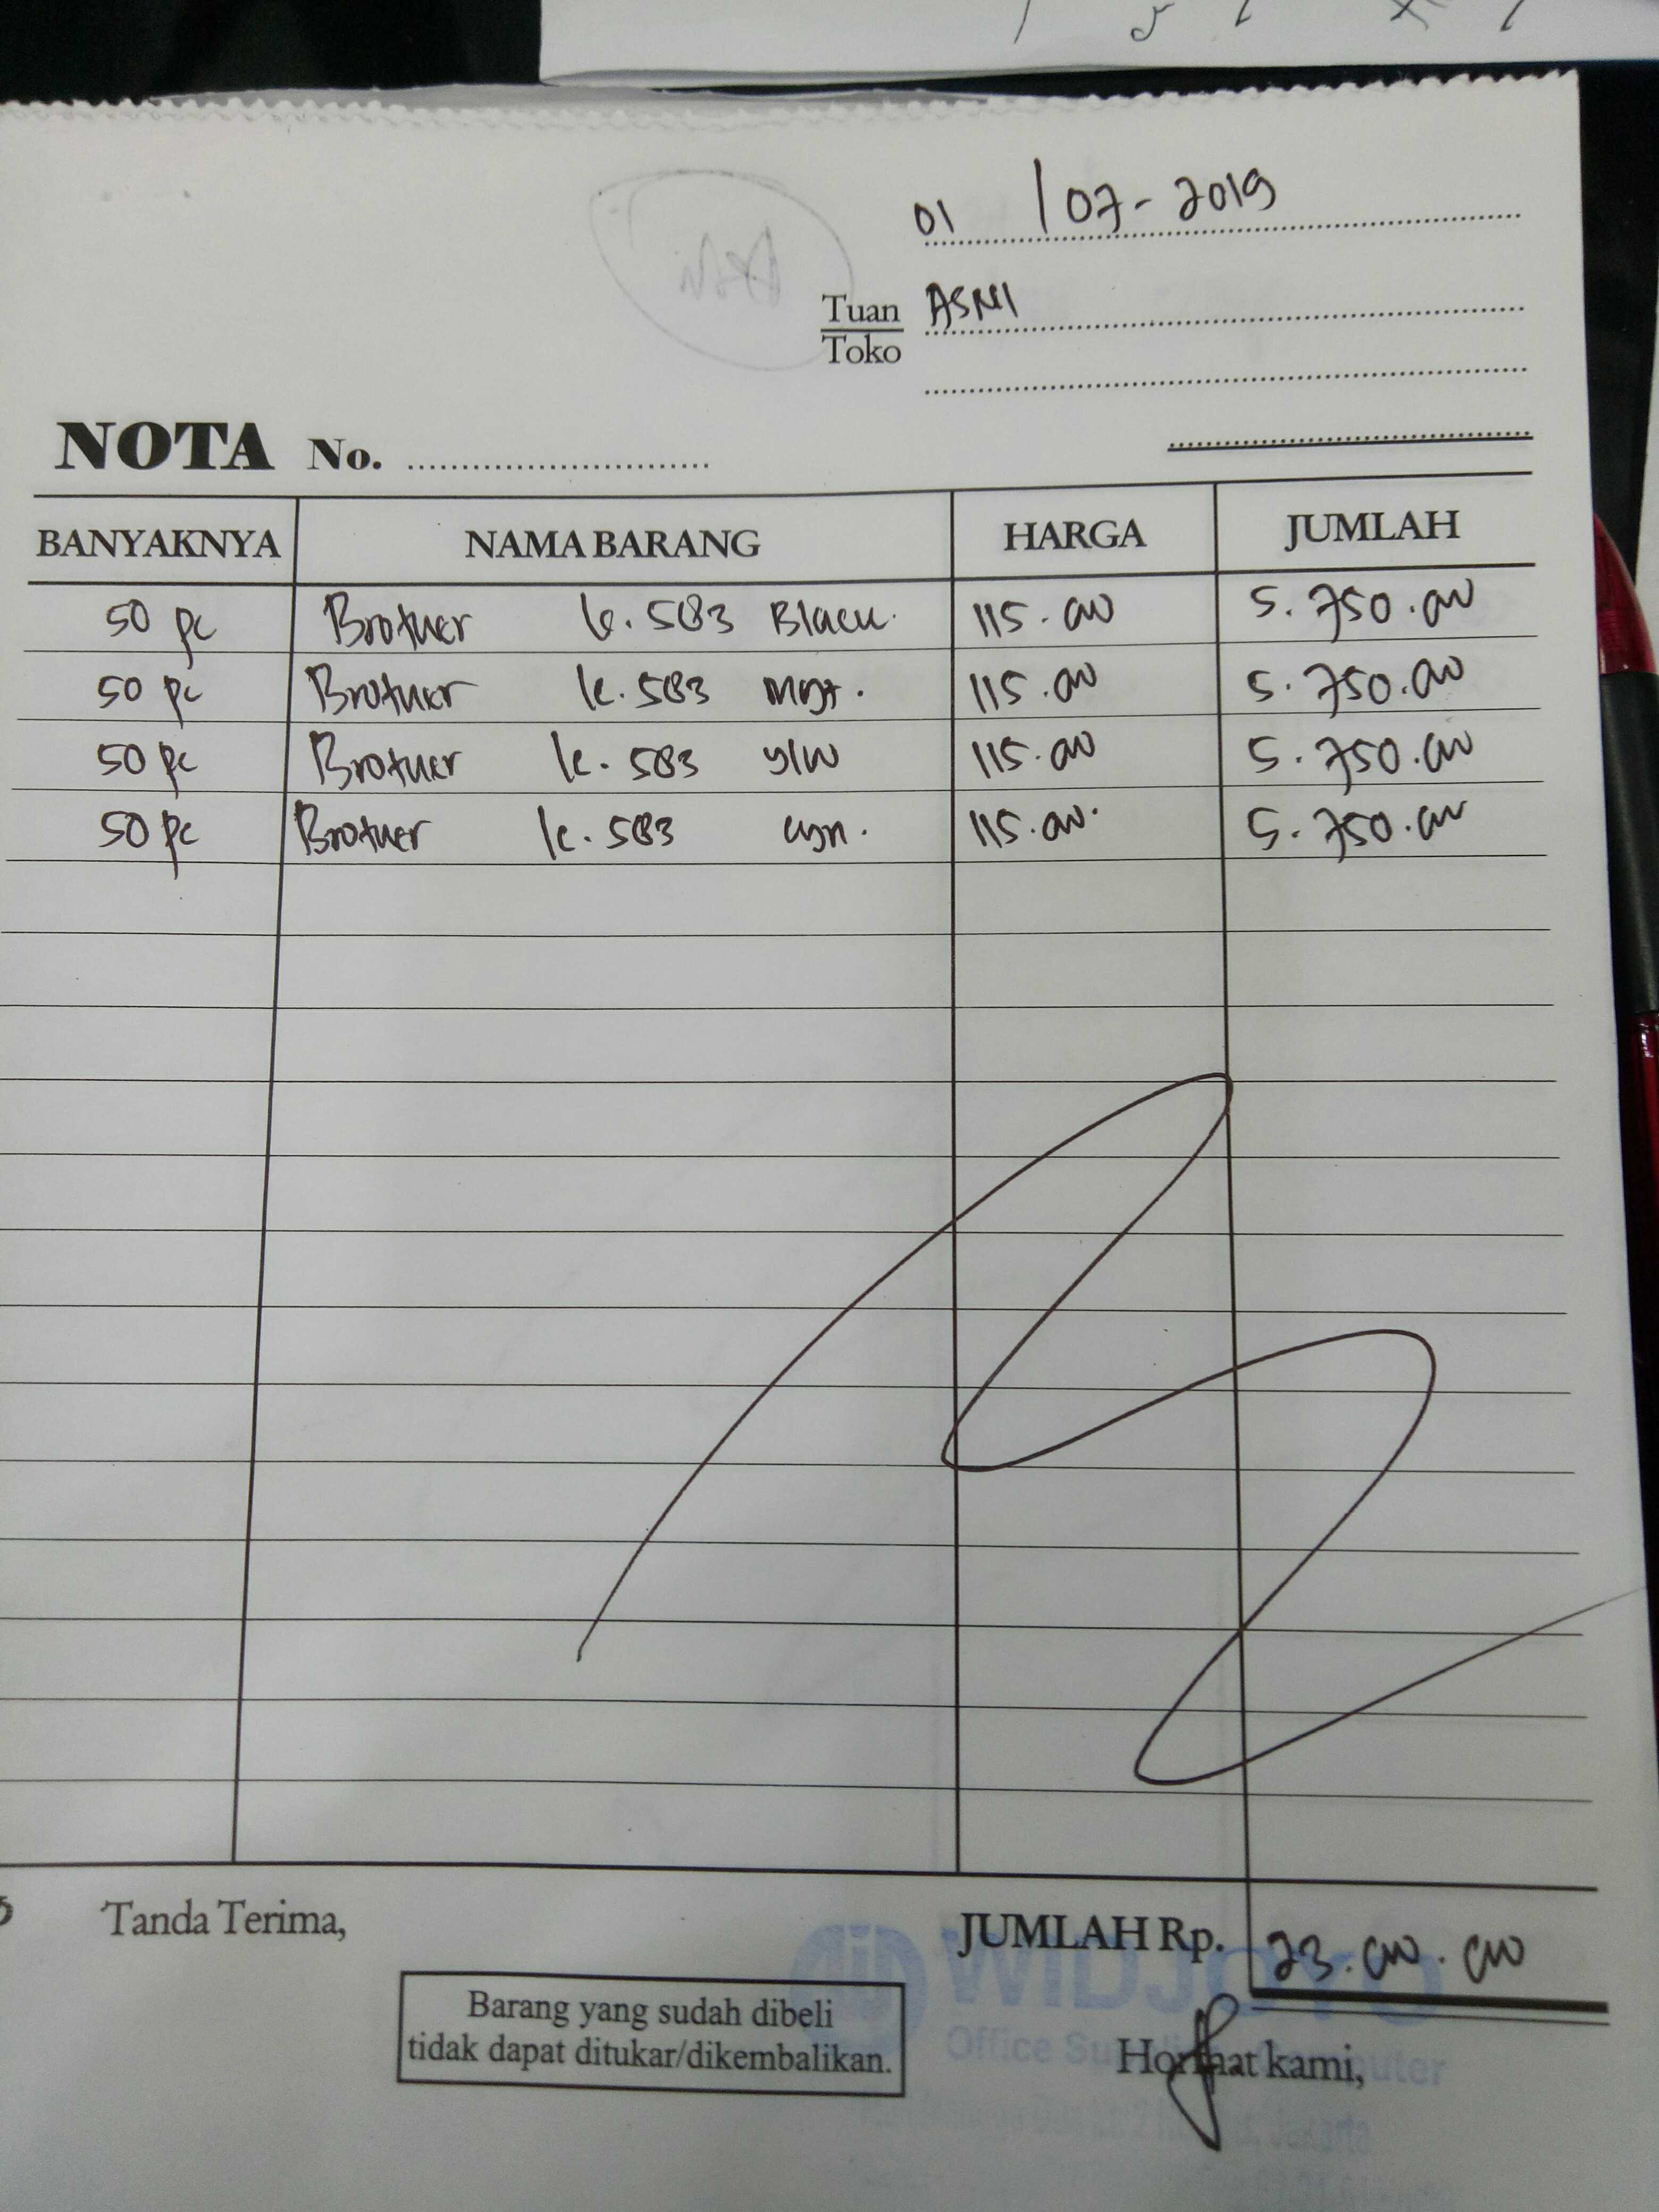 01 / 07 - 2019
Tuan ASMI
Toko
NOTA No.
BANYAKNYA NAMA BARANG HARGA JUMLAH
50 pc Brother lc. 583 Black. 115.000 5.750.000
50 pc Brother lc. 583 mgt. 115.000 5.750.000
50 pc Brother lc. 583 ylw 115.000 5.750.000
50 pc Brother lc. 583 cyn. 115.000. 5.750.000
Tanda Terima, JUMLAH Rp. 23.000.000
WIDJOYO
Barang yang sudah dibeli
tidak dapat ditukar/dikembalikan.
Office
Hormat kami,
Jakarta